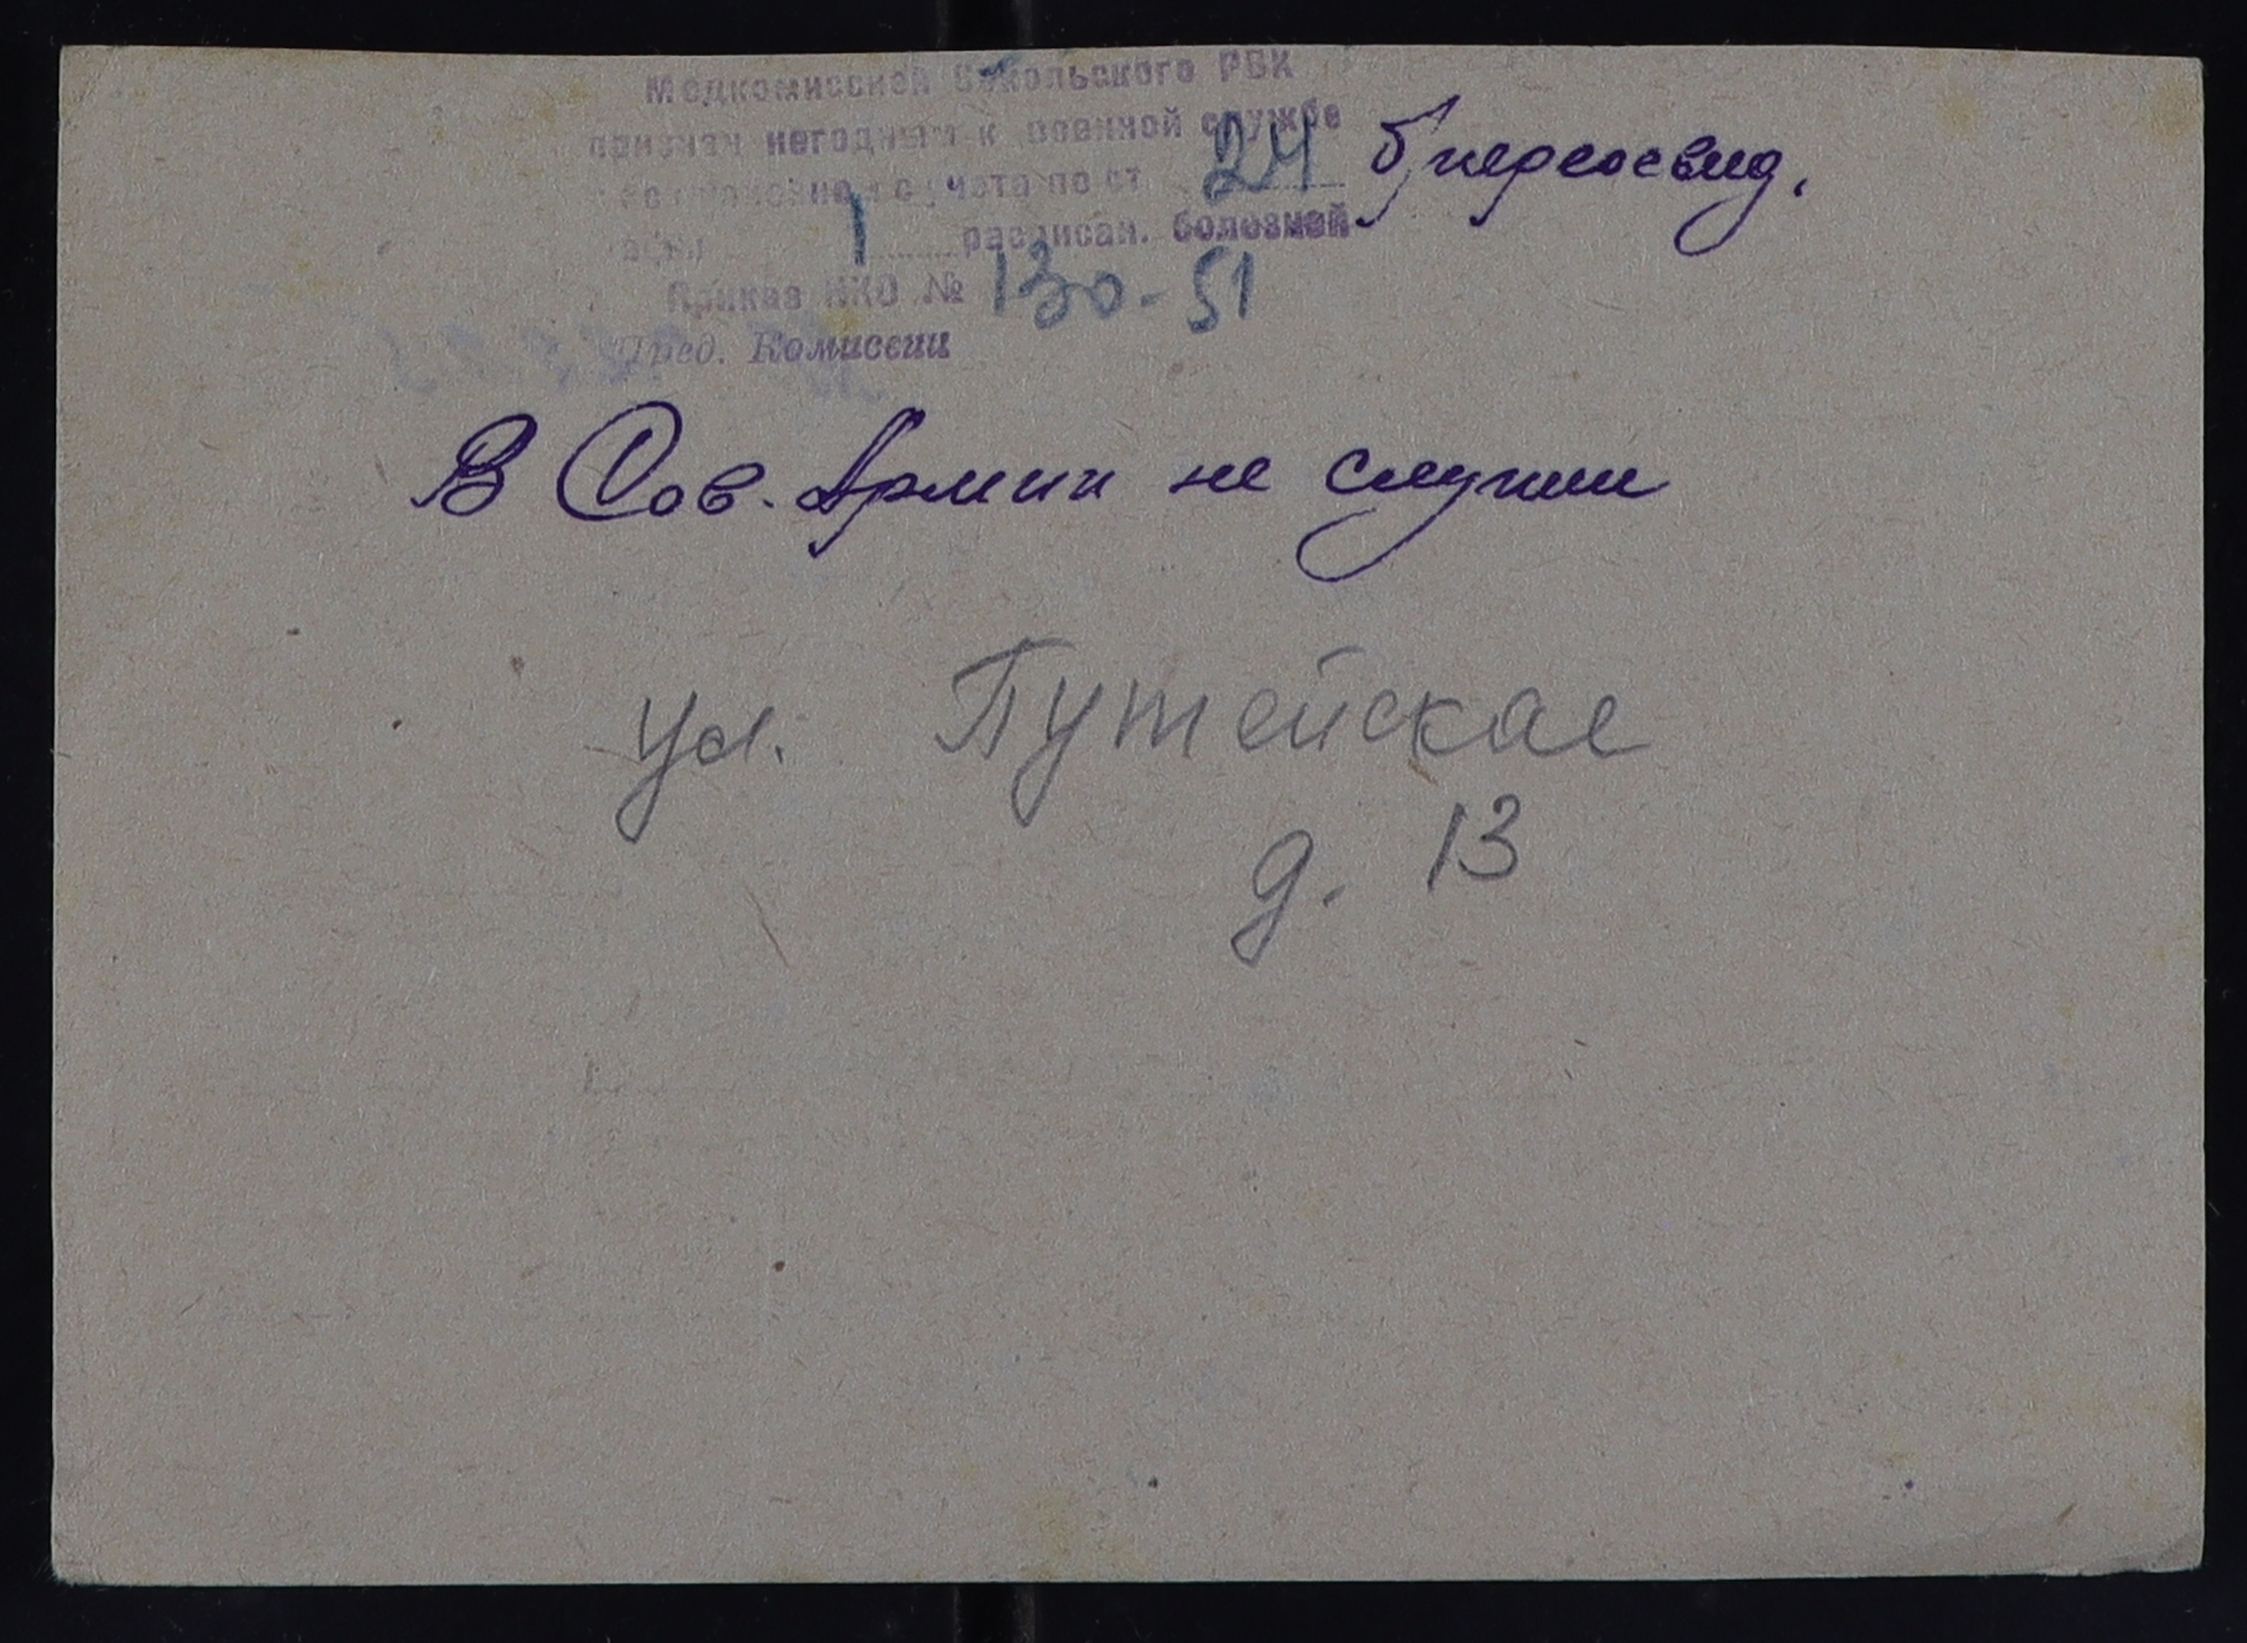 Медкомиссией Сокольского РВК
признан негодным к военной службе
с учета по ст. 24 б/пересвид.
1 расписан. болезней
Приказ НКО № 130-51
Пред. Комиссии
В Сов. Армии не служил
ул. Путейская
д. 13